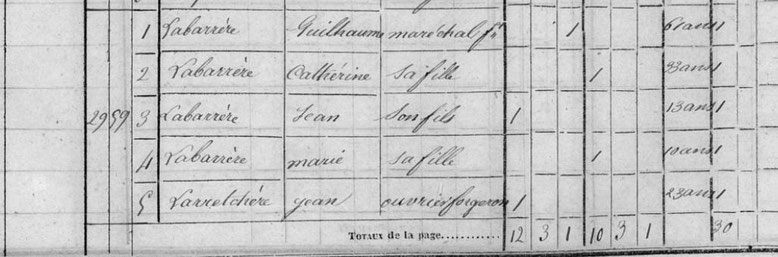 1 Labarrère Guilhaume maréchal ft 1 61 ans 1
2 Labarrère Cathérine sa fille 1 33 ans 1
29 59 3 Labarrère Jean son fils 1 13 ans 1
4 Labarrère marie sa fille 1 10 ans 1
5 Larretchère jean ouvrier forgeron 1 23 ans 1
TOTAUX de la page 12 3 1 10 3 1 30